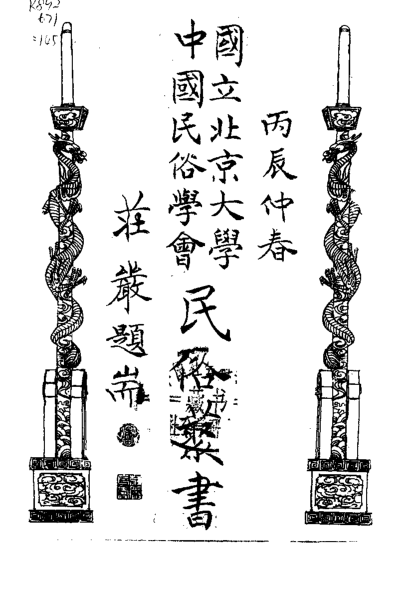 K892
671
=145
丙辰仲春
國立北京大學
中國民俗學會
民俗叢書
莊嚴題耑